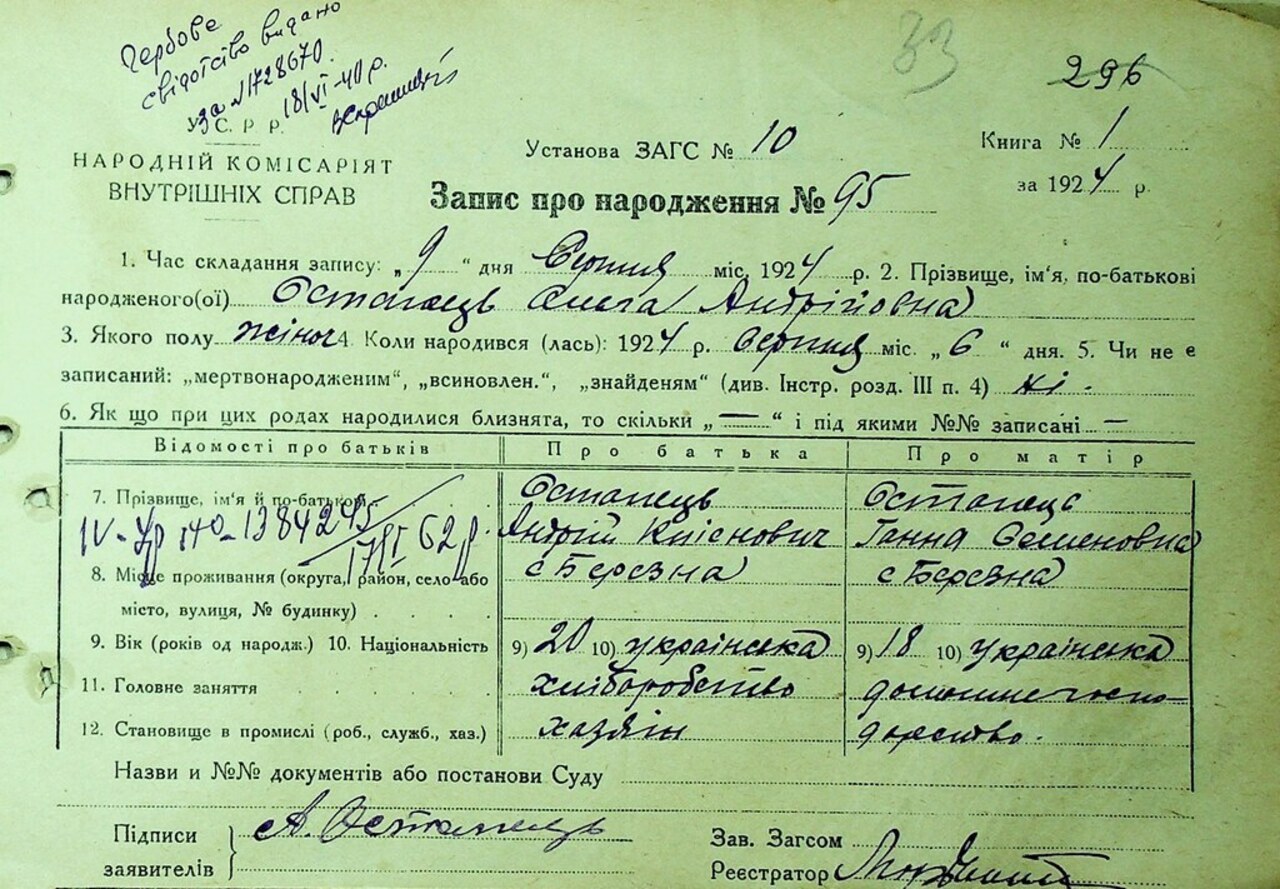 Гербове
свідотство видано
за №1728670.
18/VI-40 р.
33
296
У. С. Р. Р.
НАРОДНІЙ КОМІСАРІЯТ
ВНУТРІШНІХ СПРАВ
Установа ЗАГС № 10
Книга № 1
за 1924 р.
Запис про народження № 95
1. Час складання запису: „ 9 “ дня Серпня міс. 1924 р. 2. Прізвище, ім'я, по-батькові
народженого(ої) Остапець Ольга Андрійовна
3. Якого полу жіноч 4. Коли народився (лась): 1924 р. серпня міс. „ 6 “ дня. 5. Чи не є
записаний: „мертвонародженим“, „всиновлен.“, „знайденям“ (див. Інстр. розд. III п. 4) ні -
6. Як що при цих родах народилися близнята, то скільки „ — “ і під якими №№ записані —
Відомості про батьків Про батька Про матір
7. Прізвище, ім'я й по-батькові Остапець Остапець
Андрій Ганна Семеновна
8. Місце проживання (округа, район, село або с Березна с Березна
місто, вулиця, № будинку)
9. Вік (років од народж.) 10. Національність 9) 20 10) українська 9) 18 10) українська
11. Головне заняття хліборобство домашнє госпо-
12. Становище в промислі (роб., служб., хаз.) хазяїн дарство.
Назви и №№ документів або постанови Суду
Підписи А. Остапець Зав. Загсом
заявителів Реєстратор